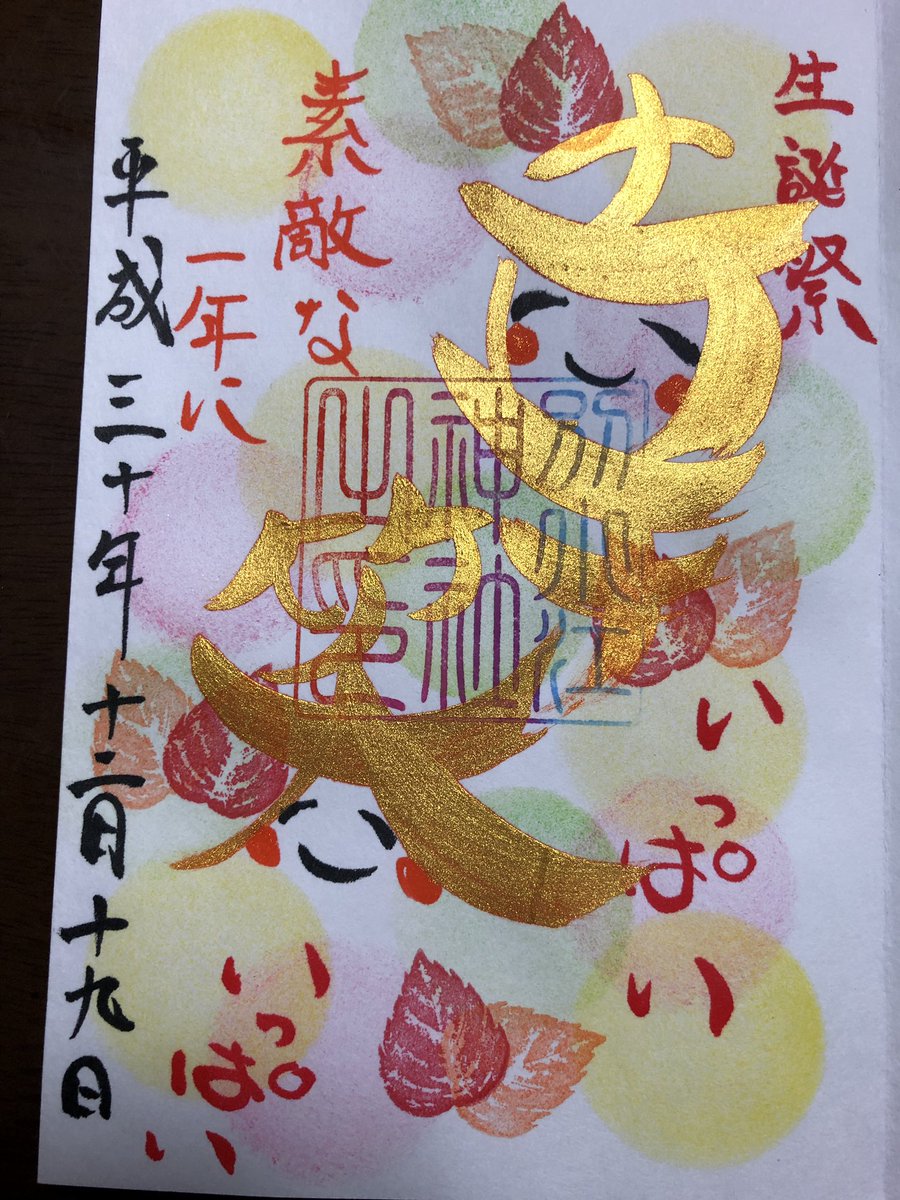 生誕祭
幸
いっぱい
笑
いっぱい
素敵な
一年に
平成三十年十二月十九日
別小江
神社
之印